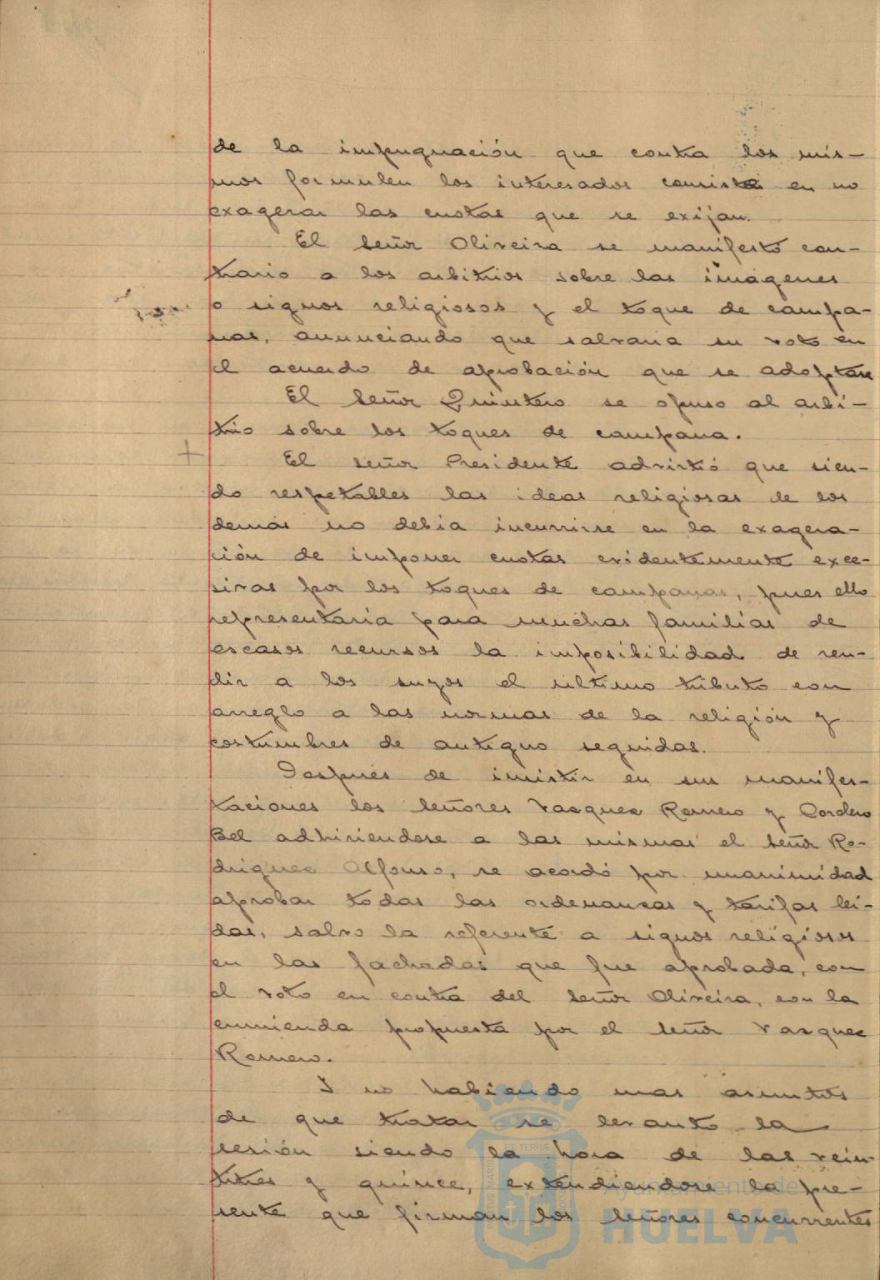 de la impugnación que contra los mis-
mos formulen los interesados consiste en no
exagerar las cuotas que se exijan.
El Señor Olivera se manifestó con-
trario a los arbitrios sobre las imágenes
o signos religiosos y el toque de campa-
nas, anunciando que salvaria su voto en
el acuerdo de aprobación que se adoptare
El Señor Quintero se opuso al arbi-
trio sobre los toques de campana.
El señor Presidente advirtió que sien-
do respetables las ideas religiosas de los
demás no debia incurrirse en la exagera-
ción de imponer cuotas evidentemente exce-
sivas por los toques de campanas, pues ello
representaria para muchas familias de
escasos recursos la imposibilidad de ren-
dir a los suyos el ultimo tributo con
arreglo a las normas de la religión y
costumbres de antiguo seguidas.
Despues de insistir en sus manifes-
taciones los Señores Vazquez Romero y Cordero
Bel adhiriendose a las mismas el Señor Ro-
driguez Alfonso, se acordó por unanimidad
aprobar todas las ordenanzas y tarifas lei-
das, salvo la referente a signos religiosos
en las fachadas que fue aprobada, con
el voto en contra del Señor Oliveira, con la
enmienda propuesta por el señor Vazquez
Romero.
Y no habiendo mas asuntos
de que tratar se levanto la
sesión siendo la hora de las vein-
titres y quince, extendiendose la pre-
sente que firman los Señores concurrentes
Ayuntamiento de
HUELVA